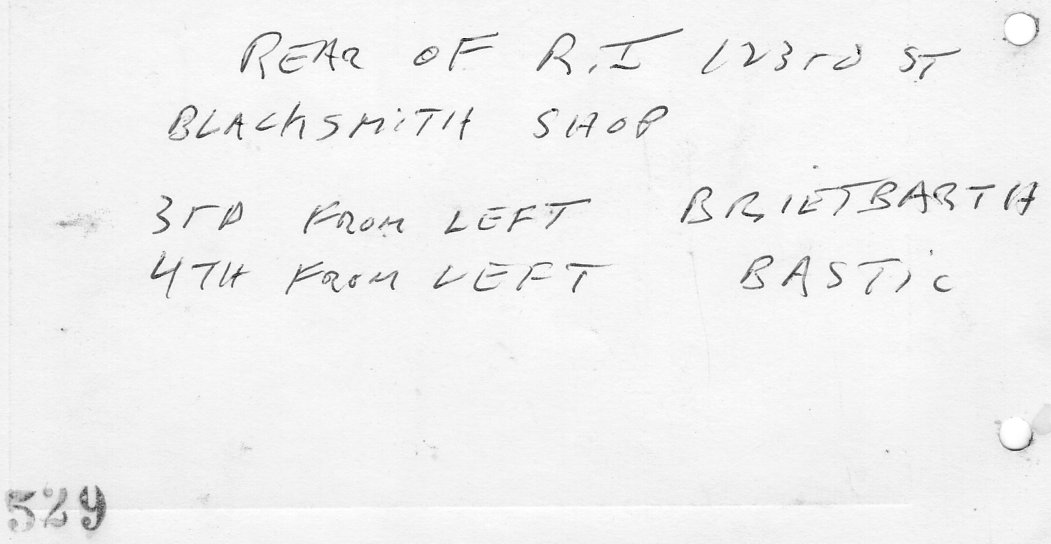 REAR OF R.I 123rd ST
BLACKSMiTH SHOP
3rD FROM LEFT BRIETBARTH
4TH FROM LEFT BASTiC
529